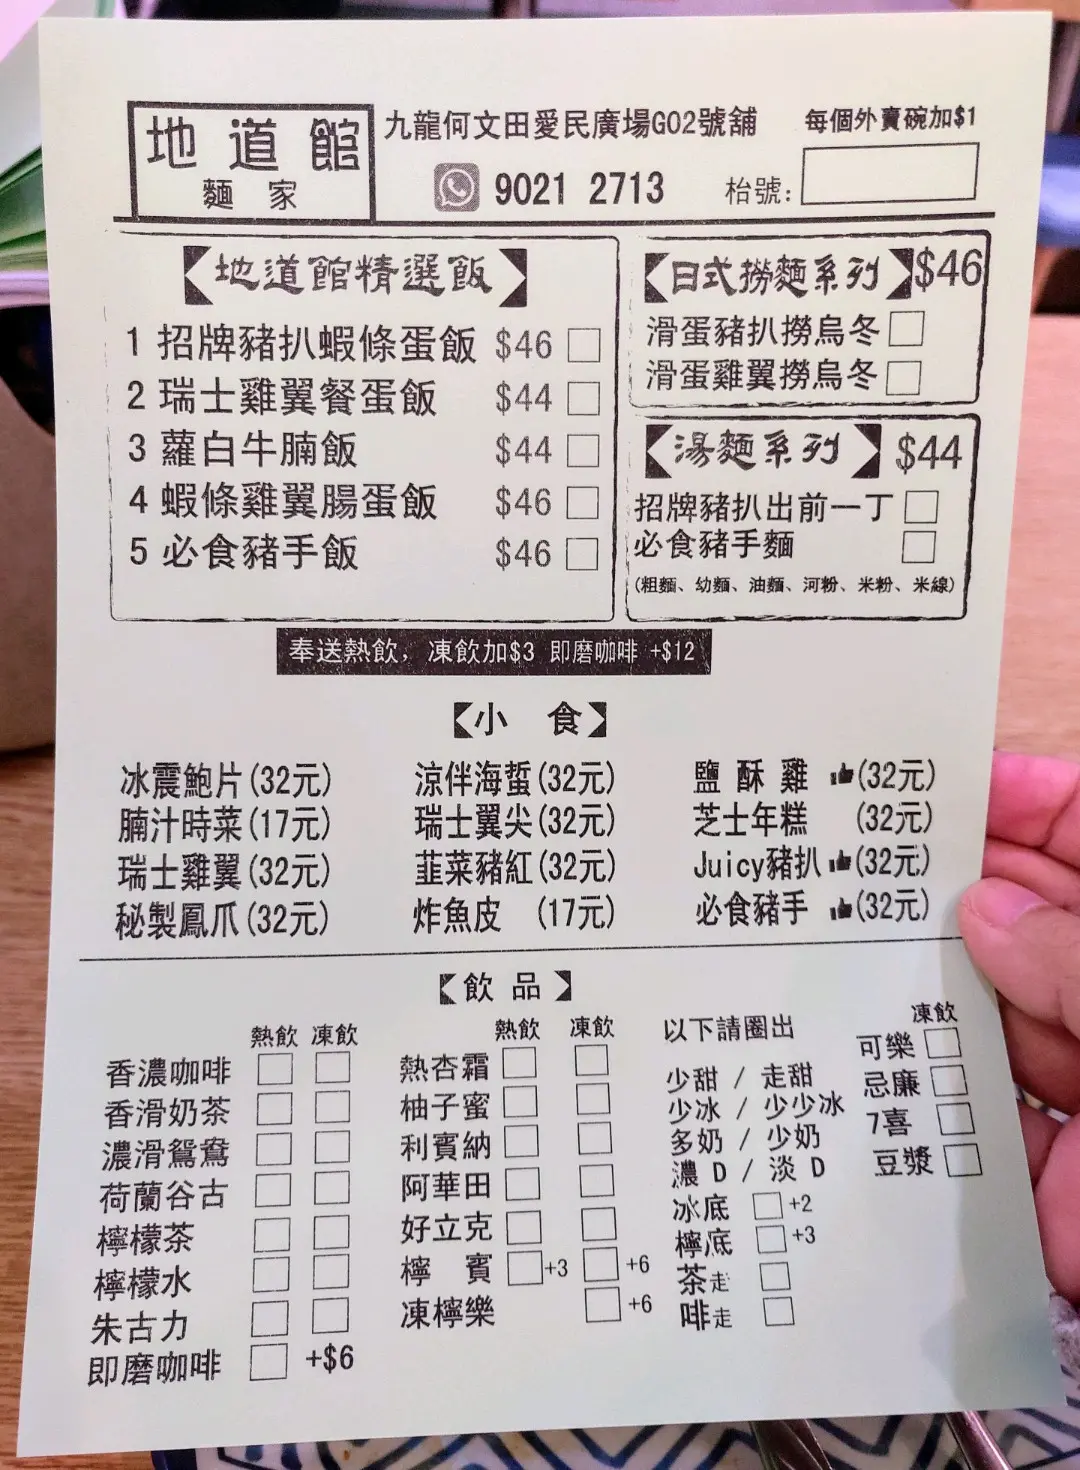 地道館
麵家
九龍何文田愛民廣場G02號舖
每個外賣碗加$1
9021 2713
枱號:
【地道館精選飯】
1 招牌豬扒蝦條蛋飯 $46
2 瑞士雞翼餐蛋飯 $44
3 蘿白牛腩飯 $44
4 蝦條雞翼腸蛋飯 $46
5 必食豬手飯 $46
【日式撈麵系列】$46
滑蛋豬扒撈烏冬
滑蛋雞翼撈烏冬
【湯麵系列】 $44
招牌豬扒出前一丁
必食豬手麵
(粗麵、幼麵、油麵、河粉、米粉、米線)
奉送熱飲，凍飲加$3 即磨咖啡 +$12
【小 食】
冰震鮑片(32元)
腩汁時菜(17元)
瑞士雞翼(32元)
秘製鳳爪(32元)
涼伴海蜇(32元)
瑞士翼尖(32元)
韮菜豬紅(32元)
炸魚皮 (17元)
鹽酥雞 (32元)
芝士年糕 (32元)
Juicy豬扒 (32元)
必食豬手 (32元)
【飲品】
熱飲 凍飲
香濃咖啡
香滑奶茶
濃滑鴛鴦
荷蘭谷古
檸檬茶
檸檬水
朱古力
即磨咖啡 +$6
熱飲 凍飲
熱杏霜
柚子蜜
利賓納
阿華田
好立克
檸賓 +3 +6
凍檸樂 +6
以下請圈出
少甜 / 走甜
少冰 / 少少冰
多奶 / 少奶
濃 D / 淡 D
冰底 +2
檸底 +3
茶走
啡走
凍飲
可樂
忌廉
7喜
豆漿